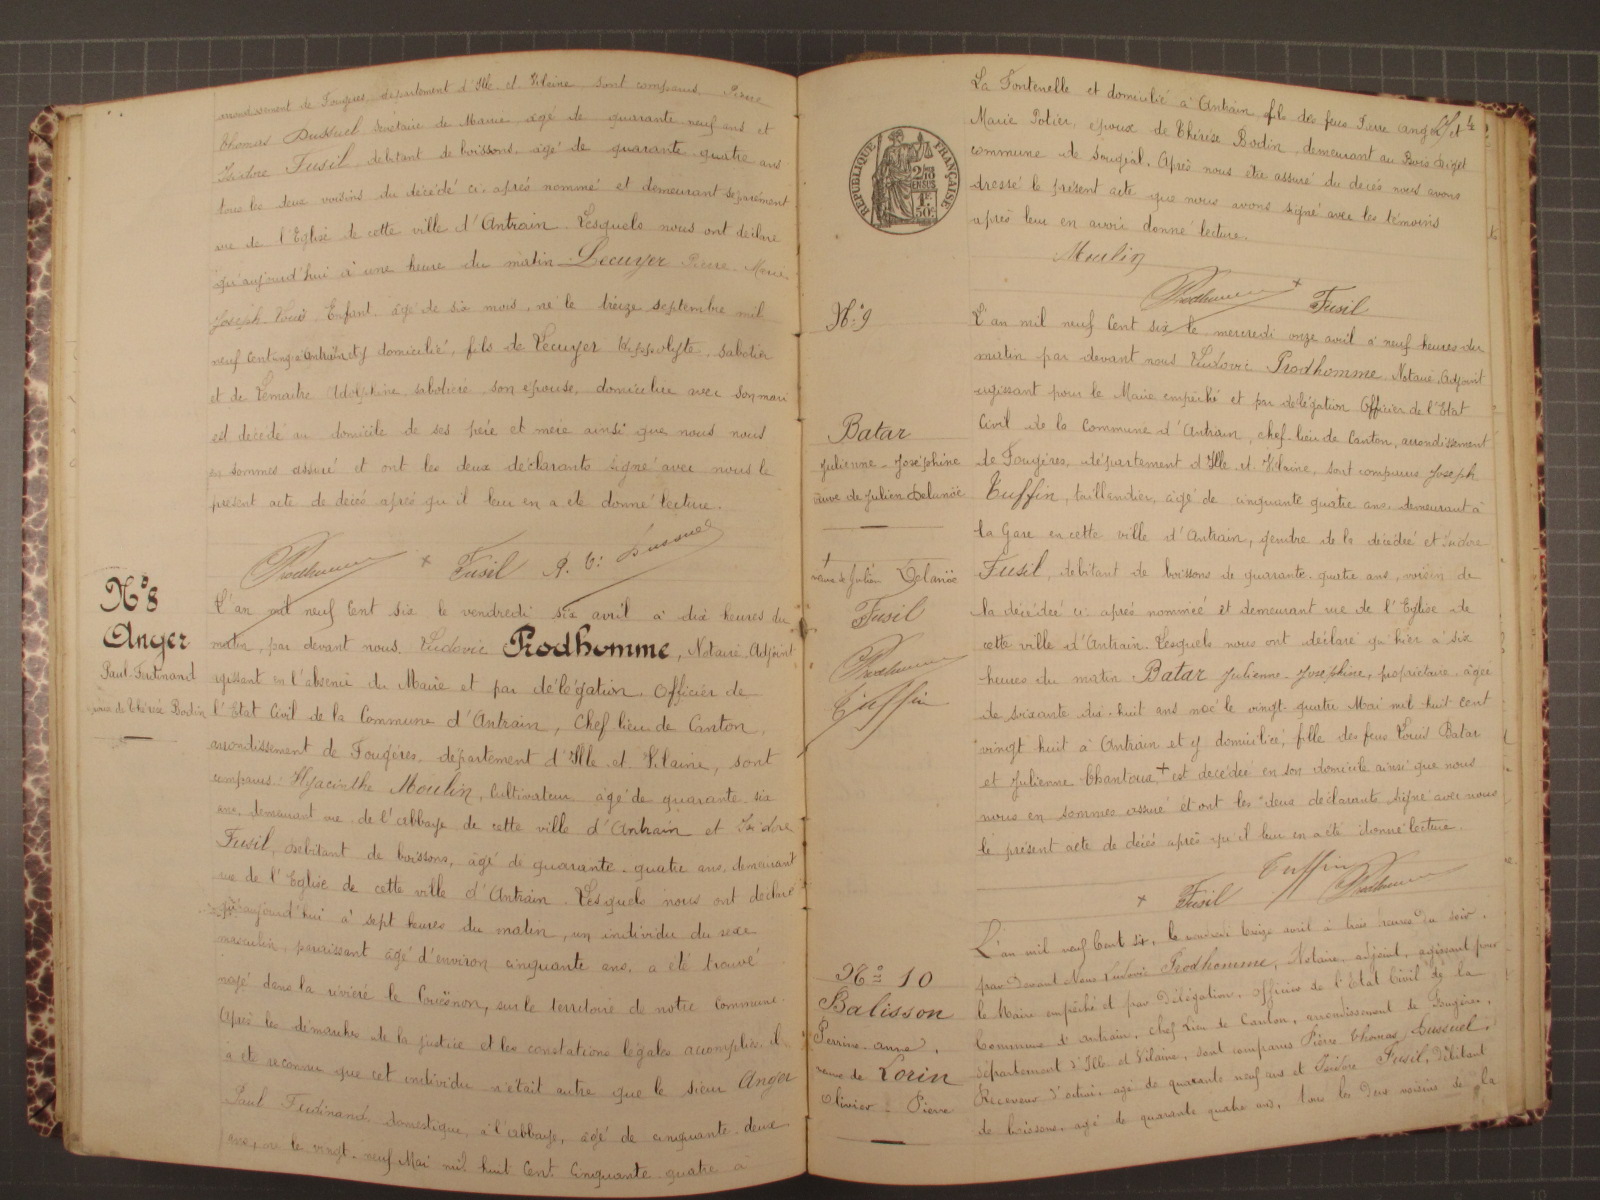 arrondissement de Fougères, département d'Ille et Vilaine sont comparus Pierre
Thomas Dussuel Secrétaire de Mairie, âgé de quarante neuf ans et
Isidore Fusil, débitant de boissons, âgé de quarante quatre ans
tous les deux voisins du décédé ci-après nommé et demeurant séparément
rue de l'Eglise de cette ville d'Antrain. Lesquels nous ont déclaré
qu'aujourd'hui à une heure du matin Lecuyer Pierre Marie
Joseph Louis, Enfant, âgé de six mois, né le treize septembre mil
neuf cent cinq à Antrain et y domicilié, fils de Lecuyer Hippolyte, sabotier
et de Lemaitre Adolphine sabotière son épouse, domiciliée avec son mari
est décédé au domicile de ses père et mère ainsi que nous nous
en sommes assuré et ont les deux déclarants signé avec nous le
présent acte de décès après qu'il leur en a été donné lecture.
Prodhomme + Fusil P. T. Dussuel
N° 8
Anger
Paul Ferdinand
époux de Thérèse Bodin
L'an mil neuf Cent six le vendredi six avril à dix heures du
matin, par devant nous Ludovic Prodhomme, Notaire, Adjoint
agissant en l'absence du Maire et par délégation, Officier de
l'Etat Civil de la Commune d'Antrain, Chef lieu de Canton,
arrondissement de Fougères, département d'Ille et Vilaine, sont
comparus Hyacinthe Moulin, Cultivateur âgé de quarante six
ans, demeurant rue de l'abbaye de cette ville d'Antrain et Isidore
Fusil, débitant de boissons, âgé de quarante quatre ans, demeurant
rue de l'Eglise de cette ville d'Antrain. Lesquels nous ont déclaré
qu'aujourd'hui à sept heures du matin, un individu du sexe
masculin, paraissant âgé d'environ cinquante ans, a été trouvé
noyé dans la rivière le Couësnon, sur le territoire de notre commune.
Après les démarches de la justice et les constations légales accomplies, il
a été reconnu que cet individu n'était autre que le sieur Anger
Paul Ferdinand, domestique, à l'abbaye, âgé de cinquante deux
ans, né le vingt-neuf Mai mil huit Cent Cinquante quatre à
RÉPUBLIQUE FRANÇAISE
2/10 EN SUS
1F. 50c
La Fontenelle et domicilié à Antrain fils des feus Pierre Anger et
Marie Potier, époux de Thérèse Bodin, demeurant au Bois Diget
commune de Sougéal. Après nous être assuré du décès nous avons
dressé le présent acte que nous avons signé avec les témoins
après leur en avoir donné lecture.
Moulin
Prodhomme + Fusil
N° 9
Batar
Julienne Joséphine
veuve de Julien Delanöe
+
veuve de Julien Delanöe
Fusil
Prodhomme
Tuffin
L'an mil neuf Cent six le mercredi onze avril à neuf heures du
matin par devant nous Ludovic Prodhomme, Notaire, Adjoint
agissant pour le Maire empêché et par délégation Officier de l'Etat
Civil de la Commune d'Antrain, chef lieu de Canton, arrondissement
de Fougères, département d'Ille et Vilaine, sont comparus Joseph
Tuffin, taillandier, âgé de cinquante quatre ans demeurant à
la Gare en cette ville d'Antrain, gendre de la décédée et Isidore
Fusil, débitant de boissons de quarante quatre ans, voisin de
la décédée ci-après nommée et demeurant rue de l'Eglise de
cette ville d'Antrain. Lesquels nous ont déclaré qu'hier à six
heures du matin Batar Julienne Joséphine, propriétaire, âgée
de soixante dix-huit ans née le vingt quatre Mai mil huit cent
vingt huit à Antrain et y domiciliée, fille des feus Louis Batar
et Julienne Chantoux + est décédée en son domicile ainsi que nous
nous en sommes assuré et ont les deux déclarants signé avec nous
le présent acte de décès après qu'il leur en a été donné lecture.
Tuffin
+ Fusil Prodhomme
N° 10
Balisson
Perrine-anne,
veuve de Lorin
Olivier-Pierre
L'an mil neuf Cent six, le vendredi treize avril à trois heures du soir,
par devant Nous Ludovic Prodhomme, Notaire, adjoint, agissant pour
le Maire empêché et par délégation, officier de l'Etat Civil de la
Commune d'Antrain, chef lieu de Canton, arrondissement de Fougères,
département d'Ille et Vilaine, sont comparus Pierre Thomas Dussuel,
Receveur d'octroi, âgé de quarante neuf ans et Isidore Fusil, débitant
de boissons, âgé de quarante quatre ans, tous les deux voisins de la